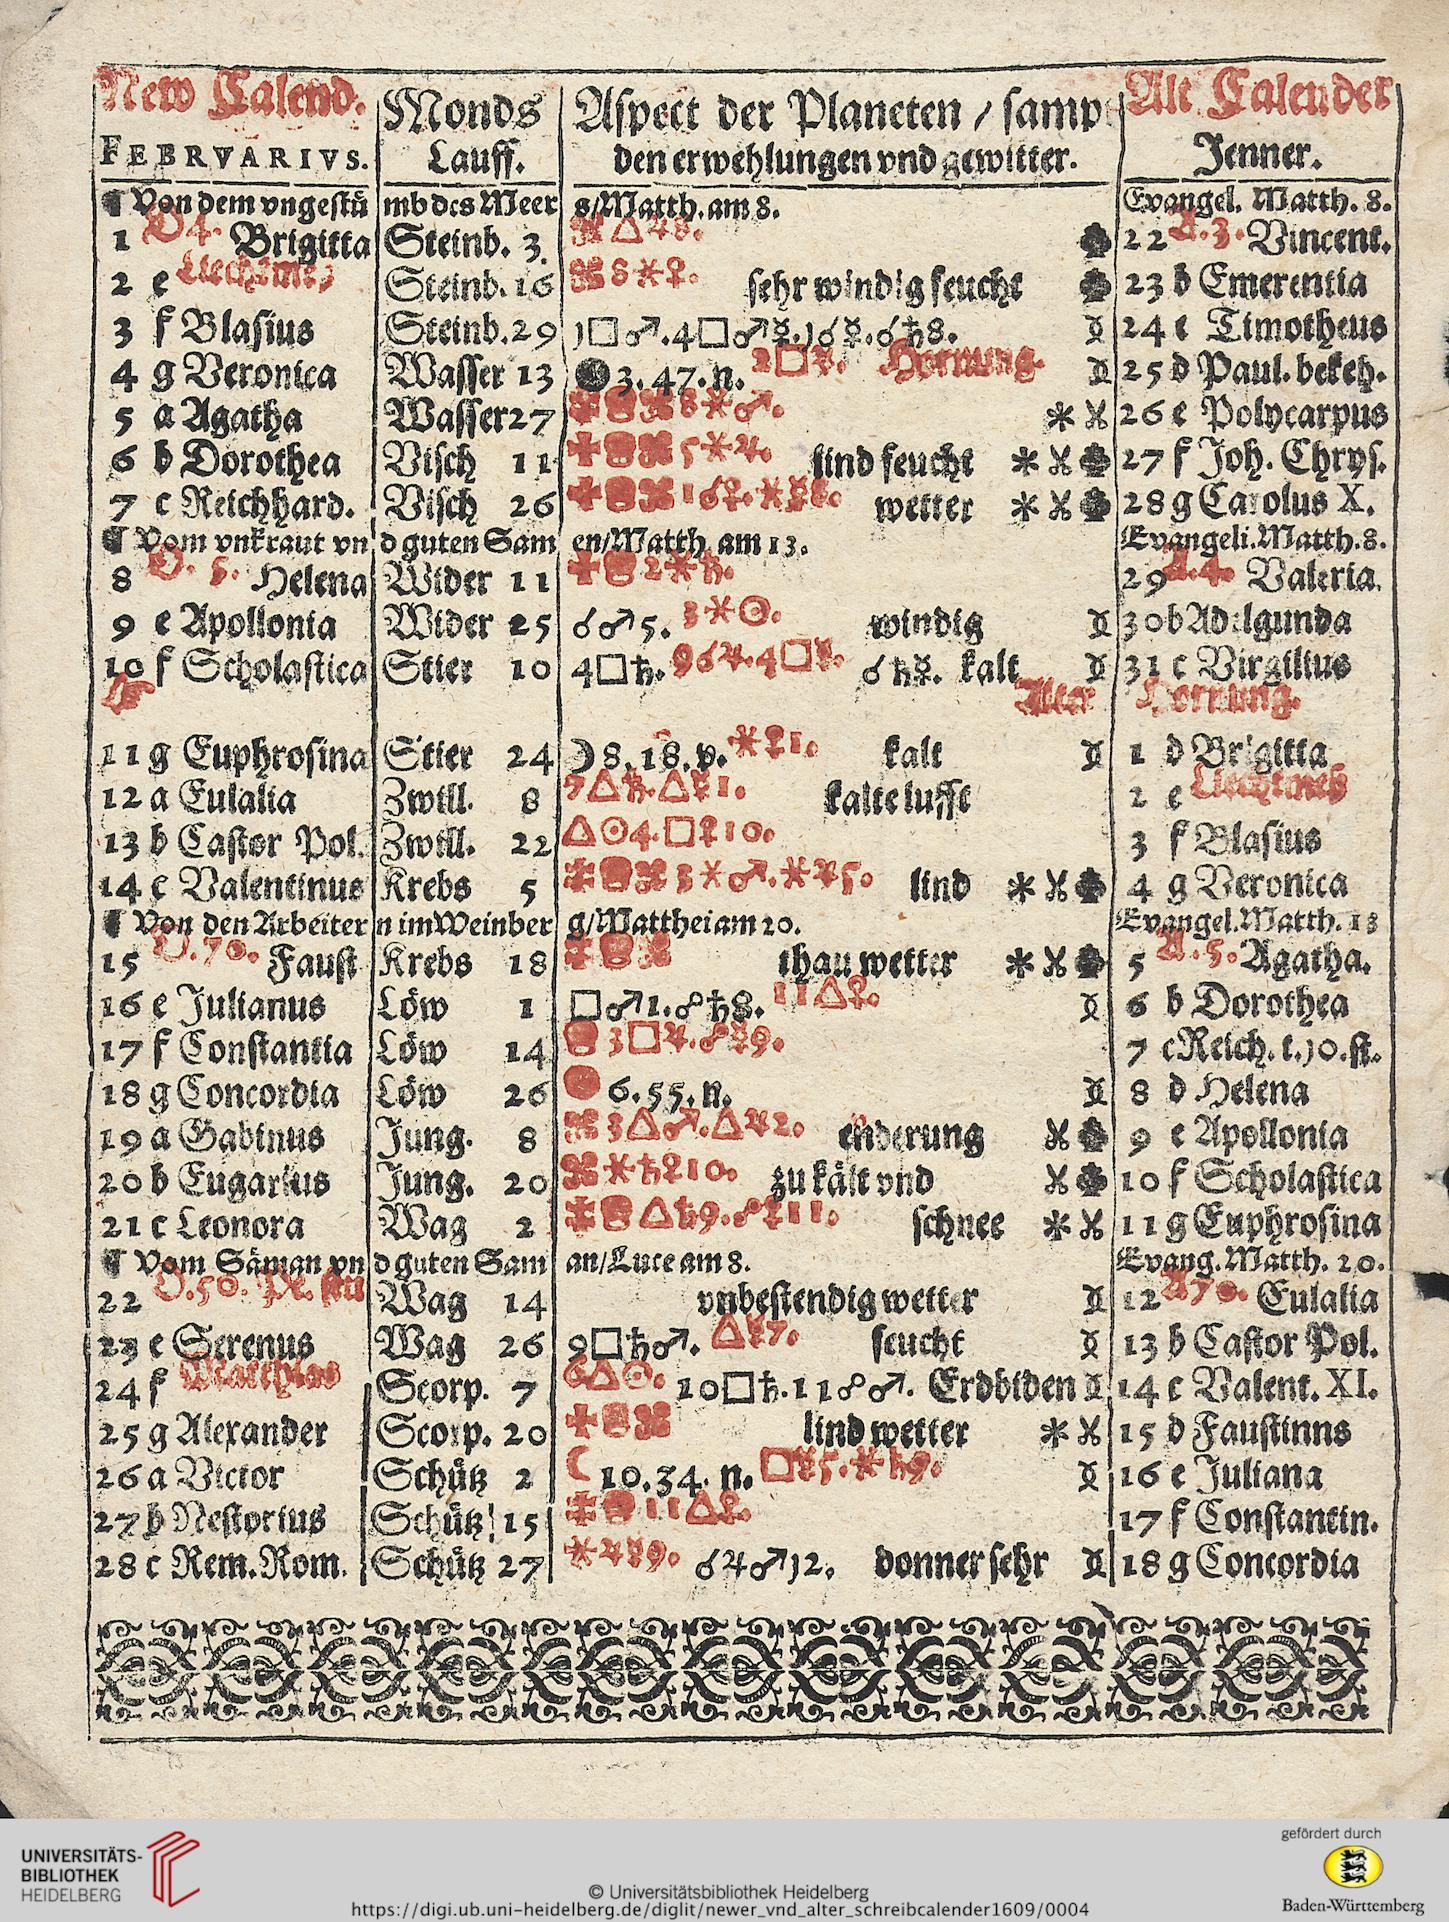 New Calend. Monds Aspect der Planeten / samp Alt Calender
FEBRVARIVS. Lauff. den erwehlungen vnd gewitter. Jenner.
¶ Von dem vngestümb des Meers/Matth. am 8. Evangel. Matth. 8.
1 D 4. Brigitta Steinb. 3. △♃8. 22 A.3. Vincent.
2 e Liechtmeß Steinb. 16 8⚹♀. sehr windig feucht 23 b Emerentia
3 f Blasius Steinb. 29 )□♂.4□♂☿.)☌☿.☌♄8. 24 c Timotheus
4 g Veronica Wasser 13 ● 3.47.n. 2□☿. Hornung. 25 d Paul. bekeh.
5 a Agatha Wasser 27 8⚹♂. 26 e Polycarpus
6 b Dorothea Visch 11 5⚹♃. lind feucht 27 f Joh. Chrys.
7 c Reichhard. Visch 26 1☌♀. wetter 28 g Carolus X.
¶ Vom vnkraut vnd guten Samen/Matth. am 13. Evangeli. Matth. 8.
8 D. 5. Helena Wider 11 2⚹♄. 29 A.4. Valeria.
9 e Apollonia Wider 25 ☌♂5. 3⚹☉. windig 30 b Adelgunda
10 f Scholastica Stier 10 4□♄. 9☌♃.4□☿. ☌♄☿. kalt 31 c Virgilius
Alter Hornung.
11 g Euphrosina Stier 24 ☽8.18.v. ⚹♀1. kalt 1 d Brigitta
12 a Eulalia Zwill. 8 7△♄.△☿1. kalte lufft 2 e Liechtmeß
13 b Castor Pol. Zwill. 22 △☉4.□♀10. 3 f Blasius
14 c Valentinus Krebs 5 3⚹♂.⚹☿5. lind 4 g Veronica
¶ Von den Arbeitern im Weinberg/Matthei am 20. Evangel. Matth. 13
15 D.70. Faust Krebs 18 thau wetter 5 A.5. Agatha.
16 e Julianus Löw 1 □♂1.☍♄8. 11△♀. 6 b Dorothea
17 f Constantia Löw 14 3□♃.☍☿9. 7 c Reich. t.)0.st.
18 g Concordia Löw 26 6.55.n. 8 d Helena
19 a Gabinus Jung. 8 3△♂.△♃2. enderung 9 e Apollonia
20 b Eugarius Jung. 20 ⚹♄♀10. zu kält vnd 10 f Scholastica
21 c Leonora Wag 2 △♄9.☍♀11. schnee 11 g Euphrosina
¶ Vom Säman vnd guten Saman/Luce am 8. Evang. Matth. 20.
22 D.50. Wag 14 vnbestendig wetter 12 A 70. Eulalia
23 e Serenus Wag 26 9□♄♂. △☿7. feucht 13 b Castor Pol.
24 f Matthias Scorp. 7 6△☉. 10□♄.11☍♂. Erdbiden 14 c Valent. XI.
25 g Alexander Scorp. 20 lind wetter 15 d Faustinns
26 a Victor Schütz 2 ☾ 10.34. n. □☿5.⚹♄9. 16 e Juliana
27 b Nestorius Schütz 15 11△♀. 17 f Constantin.
28 c Rem. Rom. Schütz 27 ⚹♃☿9. ☌♃♂)2. donner sehr 18 g Concordia
UNIVERSITÄTS-
BIBLIOTHEK
HEIDELBERG
gefördert durch
Baden-Württemberg
© Universitätsbibliothek Heidelberg
https://digi.ub.uni-heidelberg.de/diglit/newer_vnd_alter_schreibcalender1609/0004